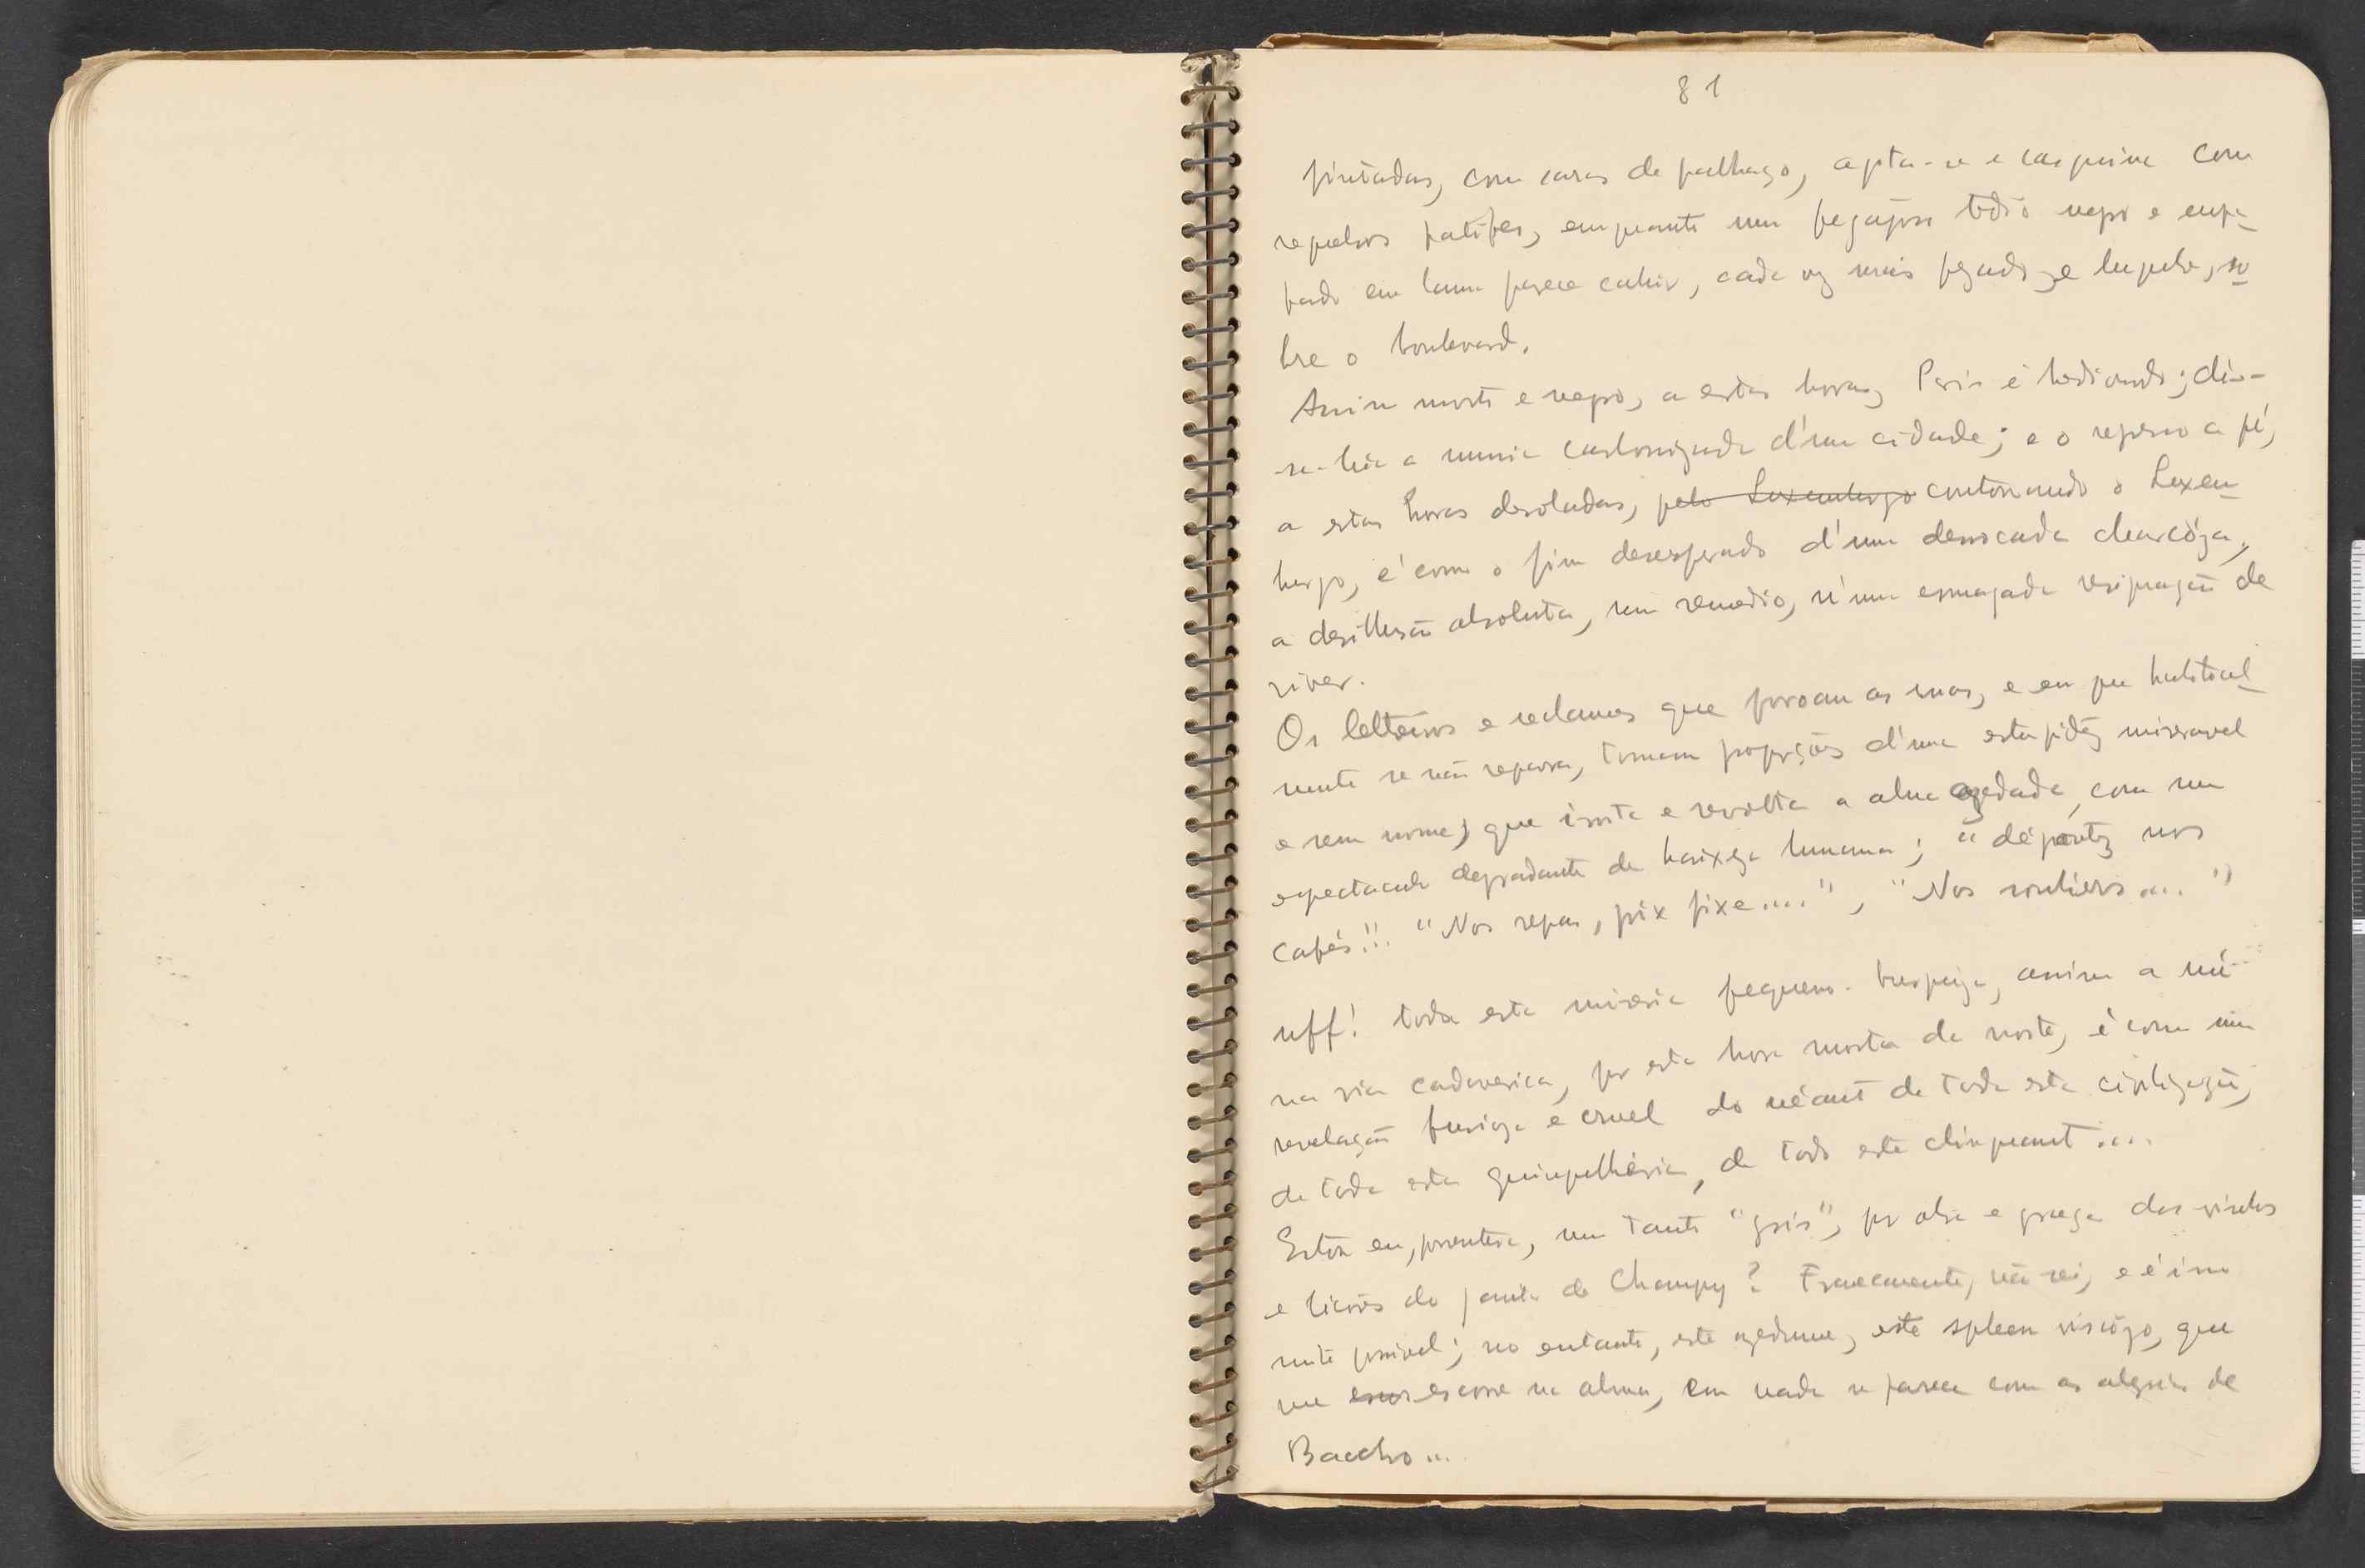 81
pintadas, com caras de palhaço, agita-se e cacqueina com
repuxos patifes, emquanto um pegajoso tedio negro e empa
pado em lama parece cahir, cada vez mais pezado e lugubre, so
bre o boulevard.
Assim morto e negro, a estas horas, Paris é hediondo; dir-
-se-hia a mumia carbonizada d'uma cidade; e o regresso a pé,
a estas horas desoladas, pelo Luxemburgo contornando o Luxem
burgo, é como o fim desesperado d'uma derrocada chaocóza,
a desillusão absoluta, sem remedio, n'uma esmagada resignação de
viver.
Os letteiros e reclames que povoam as ruas, e em que habitual
mente se não repara, tomam proporções d'uma estupidez miseravel
e sem nome, que irrita e revolta a alma azedada, com um
espectaculo degradante de baixeza humana; "dégoutez nos
cafés!!! "Nos repas, prix fixe....", "Nos souliers...."
uff! toda esta miseria pequeno-burgueza, assim a nú
na via cadaverica, por esta hora morta da noite, é como uma
revelação furioza e cruel do néant de toda esta civilização,
de toda esta quinquilheria, de todo este clinquant....
Estou eu, porventura, um tanto "gris", por obra e graça dos vinhos
e licôres do jantar do Champy? Francamente, não sei, e é isso
muito possivel; no entanto, este azedume, este spleen viscôzo, que
me escor escorre na alma, em nada se parece com as alegrias de
Baccho...